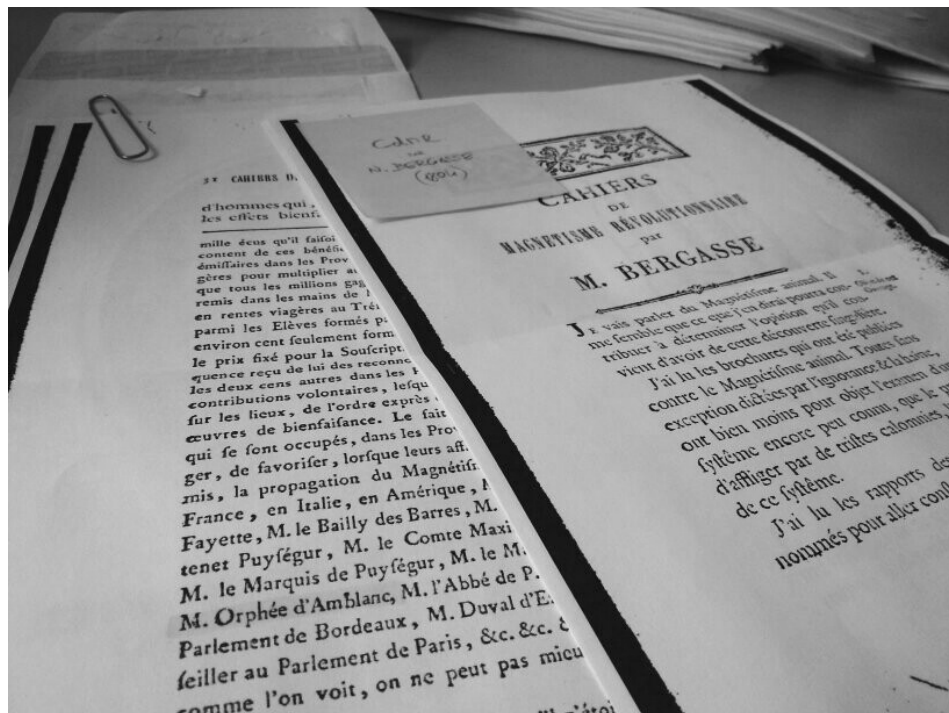 32 CAHIERS D
d'hommes qui
les effets bienf
mille écus qu'il faiſoi
content de ces bénéfi
émiſſaires dans les Prov
gères pour multiplier au
que tous les millions gag
remis dans les mains de
en rentes viagères au Tré
parmi les Elèves formés p
environ cent ſeulement form
le prix fixé pour la Souſcript
quence reçu de lui des reconno
les deux cens autres dans les P
contributions volontaires, leſqu
ſur les lieux, de l'ordre exprès
œuvres de bienfaiſance. Le fait
qui ſe ſont occupés, dans les Pro
ger, de favoriſer, lorſque leurs aff
mis, la propagation du Magnétiſ
France, en Italie, en Amérique,
Fayette, M. le Bailly des Barres, M.
tenet Puyſégur, M. le Comte Maxi
M. le Marquis de Puyſégur, M. le M.
M. Orphée d'Amblanc, M. l'Abbé de P.
Parlement de Bordeaux, M. Duval d'E
ſeiller au Parlement de Paris, &c. &c. &
comme l'on voit, on ne peut pas mieu
N. BERGASSE
CAHIERS
DE
MAGNETISME RÉVOLUTIONNAIRE
par
M. BERGASSE
JE vais parler du Magnétiſme animal. Il
me ſemble que ce que j'en dirai pourra con-
tribuer à déterminer l'opinion qu'il con-
vient d'avoir de cette découverte ſingulière.
J'ai lu les brochures qui ont été publiées
contre le Magnétiſme animal. Toutes ſans
exception dictées par l'ignorance & la haine,
ont bien moins pour objet l'examen d'un
ſyſtême encore peu connu, que le
d'affliger par de triſtes calomnies,
de ce ſyſtême.
J'ai lu les rapports des
nommés pour aller conſ